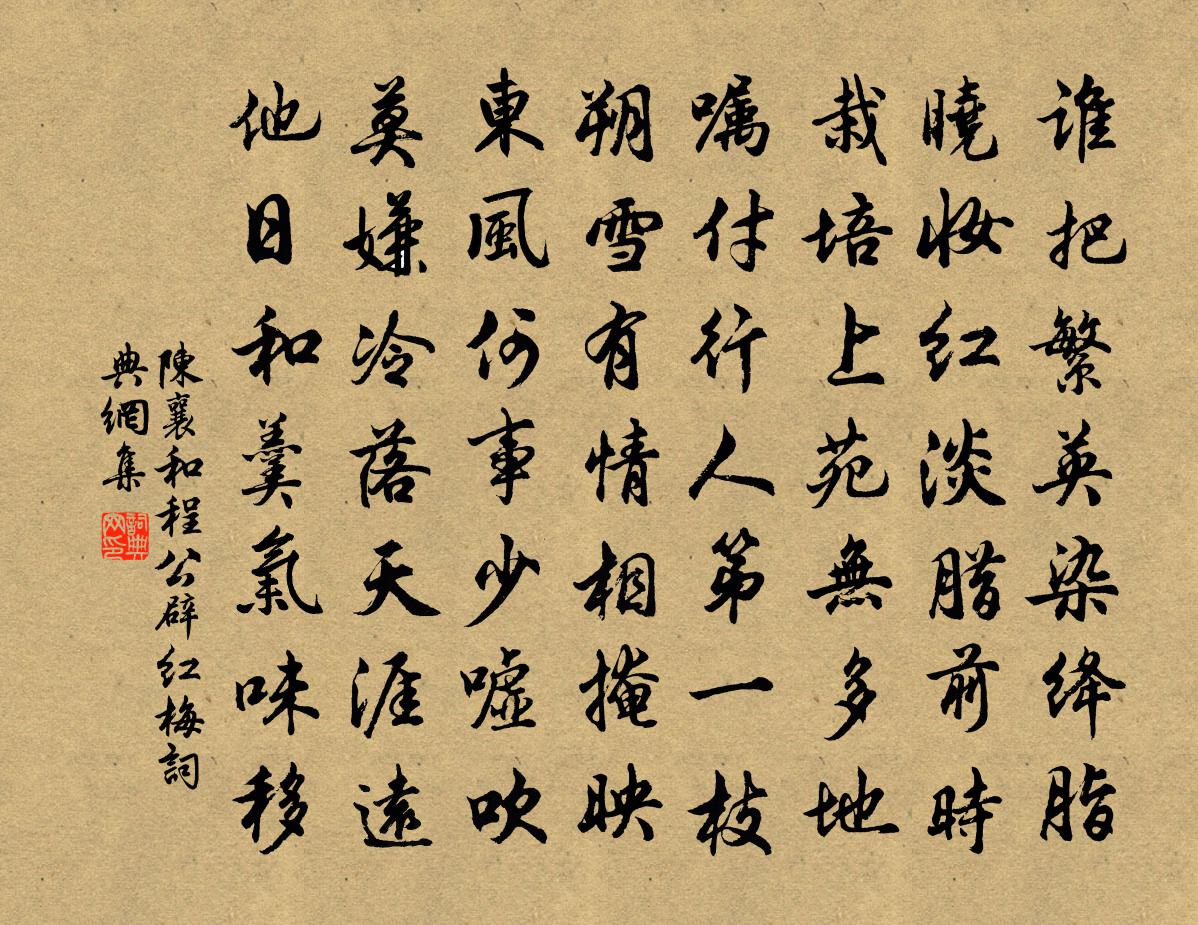 谁把繁英染绛脂
曉妆红淡腊前時
栽培上苑無多地
嘱付行人第一枝
朔雪有情相掩映
東風何事少嘘吹
莫嫌冷落天涯遠
他日和羹氣味移
陳襄和程公辟红梅詞
典網集
詞典
网印